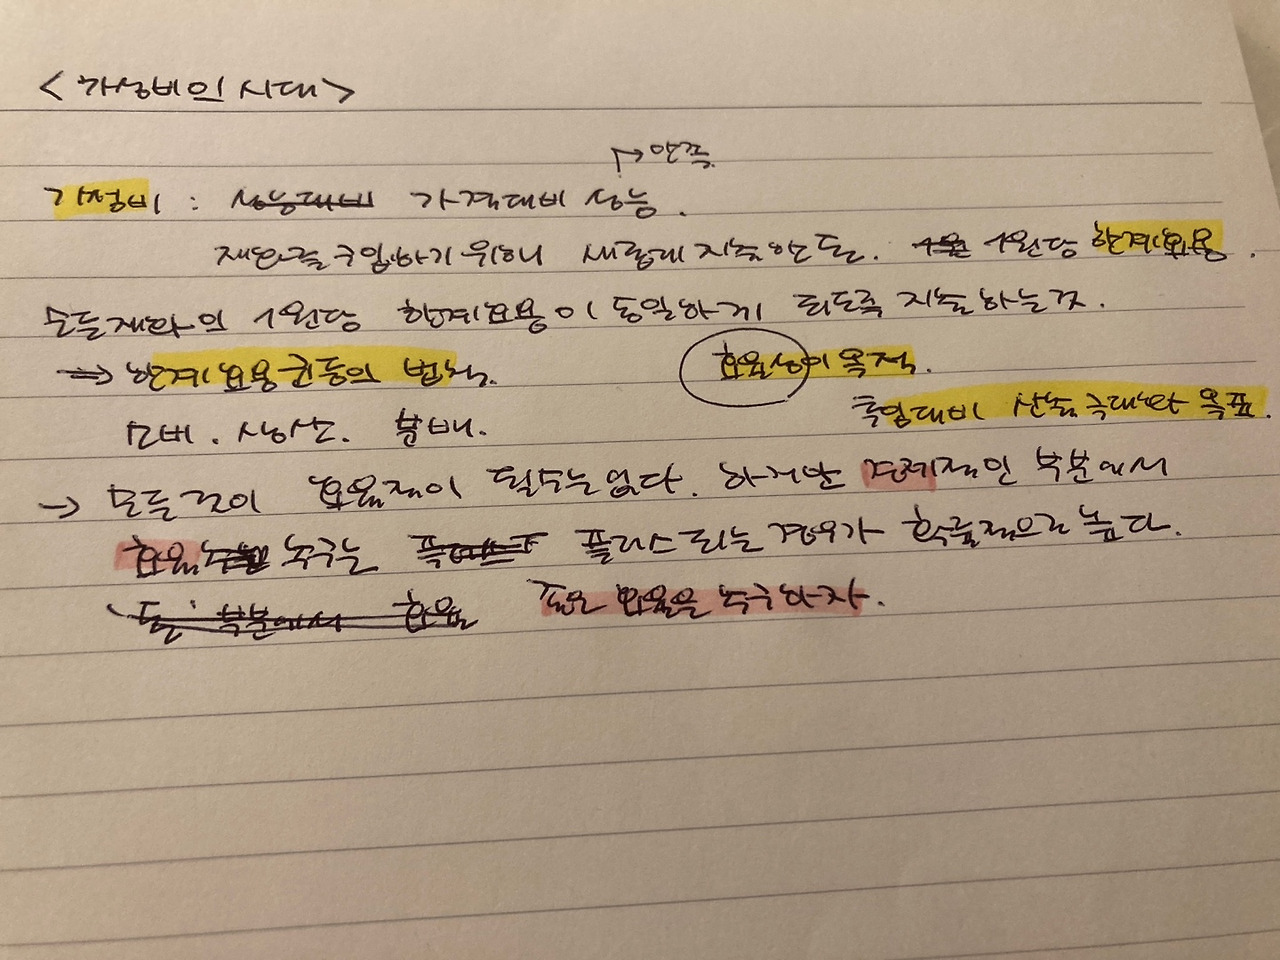 <가성비의 시대>
→만족
가성비 : 성능대비 가격대비 성능.
재화를 구입하기 위해 새롭게 지출한 돈. 1원 1원당 한계효용.
모든 재화의 1원당 한계효용이 동일하게 되도록 지출하는것.
→ 한계효용균등의 법칙.
효율성이 목적.
투입대비 산출 극대화 목표.
소비. 생산. 분배.
→ 모든 것이 효율적이 될 수는 없다. 하지만 경제적인 부분에서
효율 추구는 플러스 되는 경우가 확률적으로 높다.
부분에서 효율 효율을 추구하자.